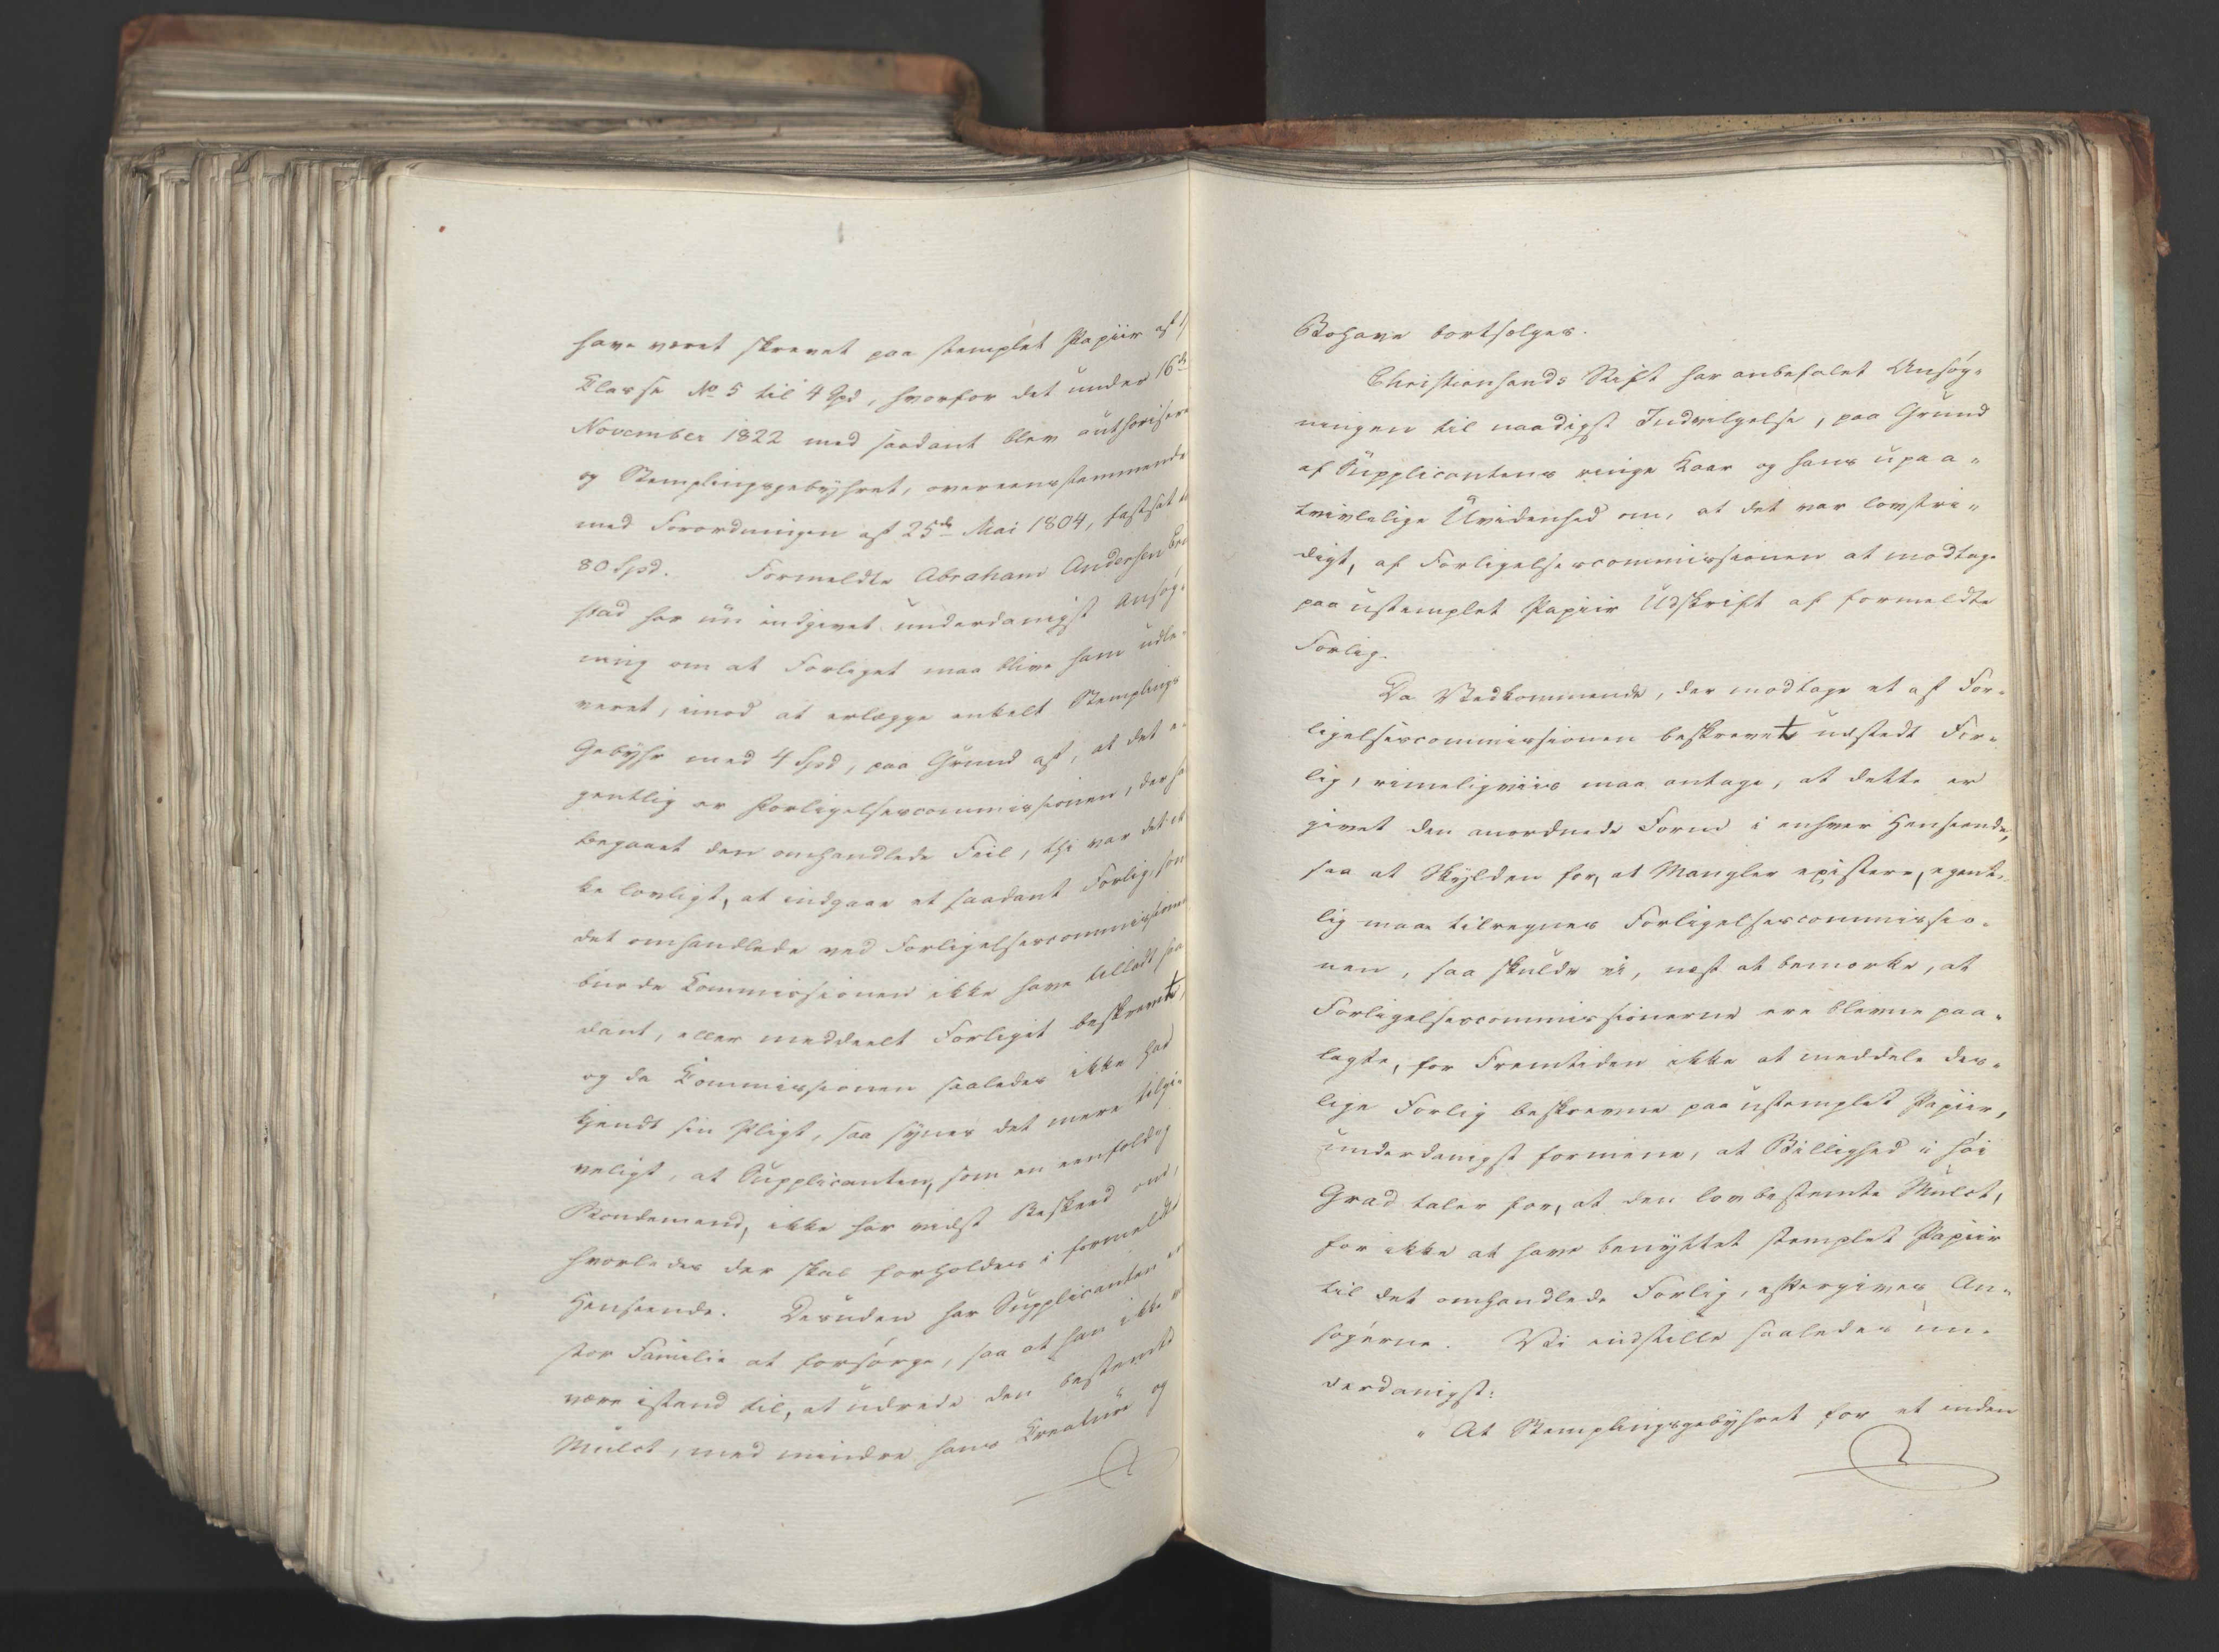 have været skrevet paa stemplet Papiir af 1
Classe No 5 til 4 Spd, hvorfor det under 16de
November 1822 med saadant blev authorisere
og Stemplingsgebyhret, overeensstemmende
med Forordningen af 25de Mai 1804, fastsat t
80 Spd. Formeldte Abraham Andersen
stad har nu indgivet underdanigst Ansøg-
ning om at Forliget maa blive ham udle-
veret, imod at erlægge enkelt Stemplings
Gebyhr med 4 Spd, paa Grund af, at det e-
gentlig er Forligelsescommissionen, der ha
begaaet den omhandlede Feil, thi var det ik
ke lovligt, at indgaae et saadant Forlig, som
det omhandlede ved Forligelsescommissionen
burde Commissionen ikke have tilladt saa
dant, eller meddeelt Forliget beskrevet,
og da Commissionen saaledes ikke har
kjendt sin Pligt, saa synes det mere tilgi-
veligt, at Supplicanten, som en eenfoldig
Bondemand, ikke har vidst Beskeed om,
hvorledes der skal forholdes i formeldte
Henseende. Desuden har Supplicanten en
stor Familie at forsørge, saa at han ikke er
være istand til, at udrede den bestemte
Mulct, med mindre hans Creature og
Bohave bortsælges.
Christiansands Stift har anbefalet Ansøg-
ningen til naadigst Indvilgelse, paa Grund
af Supplicantens ringe Kaar og hans upaa-
tvivlelige Uvidenhed om, at det var lovstri-
digt, af Forligelsescommissionen at modtage
paa ustemplet Papiir Udskrift af formeldte
Forlig.
Da Vedkommende, der modtage et af For-
ligelsescommissionen beskrevet udstedt For-
lig, rimeligviis maa antage, at dette er
givet den anordnede Form i enhver Henseende,
saa at Skylden for, at Mangler existere, egent-
lig maae tilregnes Forligelsescommissio-
nen, saa skulde vi, næst at bemærke, at
Forligelsescommissionerne ere blevne paa-
lagte, for Fremtiden ikke at meddele des-
lige Forlig beskrevne paa ustemplet Papiir,
underdanigst formene, at Billighed i høi
Grad taler for, at den lovbestemte Mulct,
for ikke at have benyttet stemplet Papiir
til det omhandlede Forlig, eftergives An-
søgerne. Vi indstille saaledes un-
derdanigst:
" At Stemplingsgebyhret for et inden